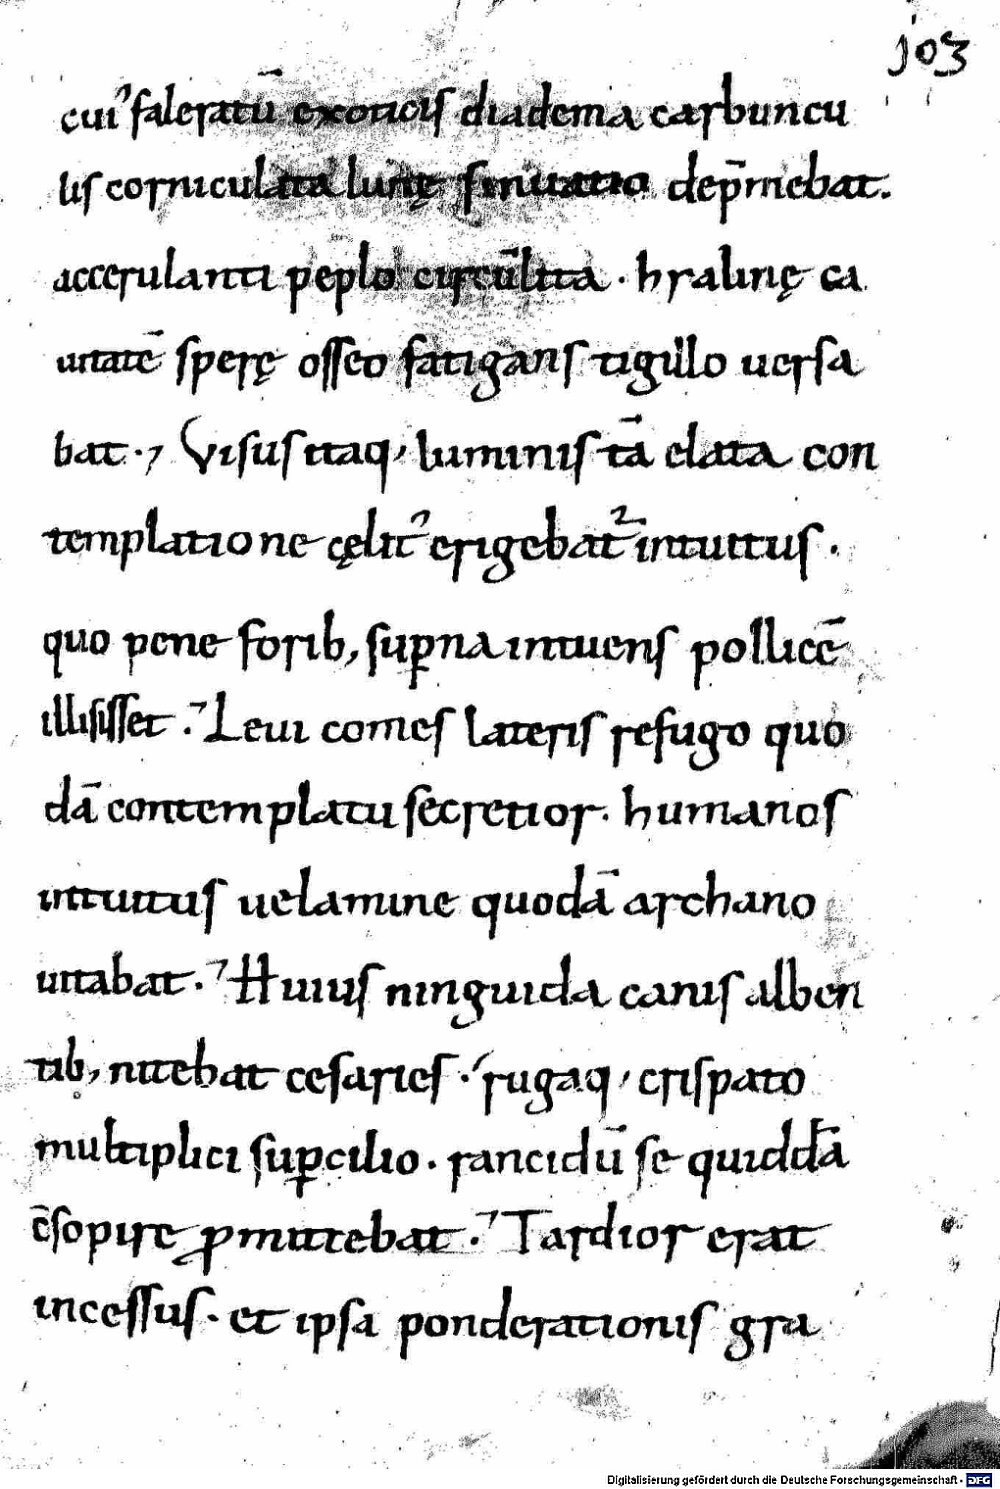 103
cui᾿ faleratū exoticis diadema carbuncu
lis corniculata lunę sinuatio dep̄mebat.
accerulanti peplo circūlita · hyalinę ca
uitatē sperę osseo fatigans tigillo uersa
bat ·, Visus itaq, luminis tā elata con
templatione cęlit᾿ erigebat᾿ intuitus ·
quo pene forib, suꝑna intuens pollicē
illisisset · Leui comes lateris refugo quo
dā contemplatu secretior · humanos
intuitus uelamine quodā archano
uitabat · Huius ninguida canis alben
tib, nitebat cesaries · rugaq, crispato
multiplici suꝑcilio · rancidū se quiddā
c̄sopire ꝓmittebat · Tardior erat
incessus · et ipsa ponderationis gra
Digitalisierung gefördert durch die Deutsche Forschungsgemeinschaft - DFG